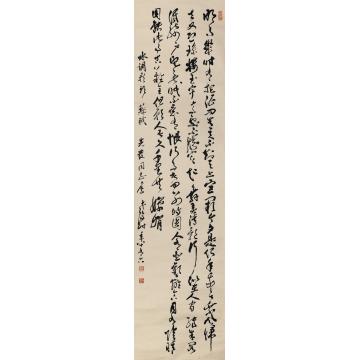 明月幾時有把酒問青天不知天上宮闕今夕是何年我欲乘風歸
去又恐瓊樓玉宇高處不勝寒起舞弄清影何似在人間轉朱閣
低綺戶照無眠不應有恨何事長向別時圓人有悲歡離合月有陰晴
圓缺此事古難全但願人長久千里共嬋娟
水調歌頭 蘇軾 同志屬